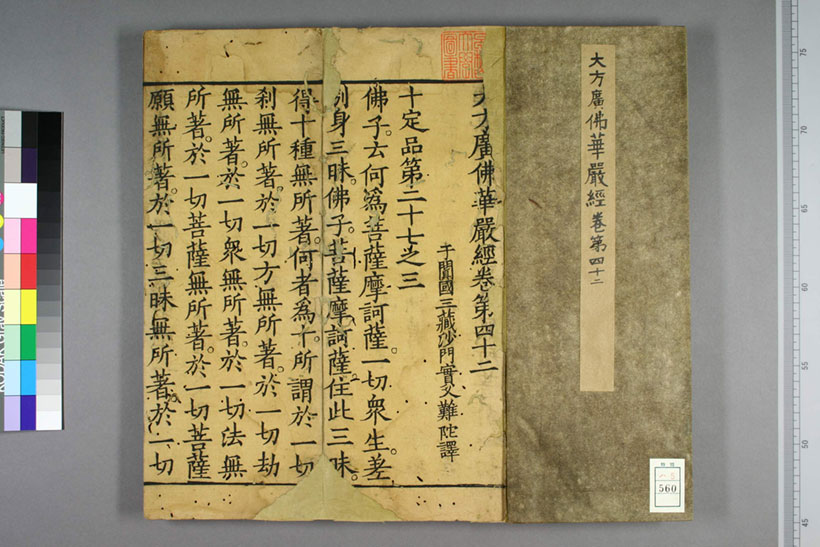 大方廣佛華嚴經卷第四十二
大方廣佛華嚴經卷第四十二
于闐國三藏沙門實叉難陀譯
十定品第二十七之三
佛子。云何為菩薩摩訶薩一切眾生差
別身三昧。佛子。菩薩摩訶薩住此三昧。
得十種無所著。何者為十。所謂於一切
剎無所著。於一切方無所著。於一切劫
無所著。於一切眾無所著。於一切法無
所著。於一切菩薩無所著。於一切菩薩
願無所著。於一切三昧無所著。於一切
560